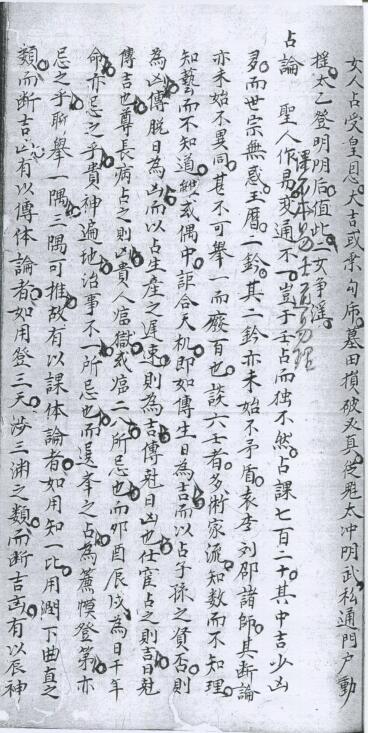 女人占受皇恩大吉或朱勾席墓田損破又真後兎太冲明武私通門戶動
搖太乙登明明后值此二女爭淫
占論 聖人作易変通不一豈于壬占而独不然占課七百二十其中吉少凶
多而世宗無惑玉曆二鈐其二鈐亦未始不矛盾袁李刘邵諸師其断論
亦未始不異同甚不可舉一而廢百也談六壬者多術家流知数而不知理
知藝而不知道或偶中詎合天机即如傳生日為吉而以占子孫之貭否則
為凶傳脱日為凶而以占生産之遅速則為吉傳尅日凶也仕宦占之則吉日尅
傳吉也尊長病占之則凶貴人臨獄或臨二八所忌也而卯酉辰戌為日干年
命亦忌之乎貴神遍地治事不一所忌也而選峯之占為簾幙登第亦
忌之乎聊舉一隅三隅可推故有以課体論者如用知一比用潤下曲直之
類而断吉凶有以傳体論者如用登三天渉三淵之類而断吉凶有以辰神